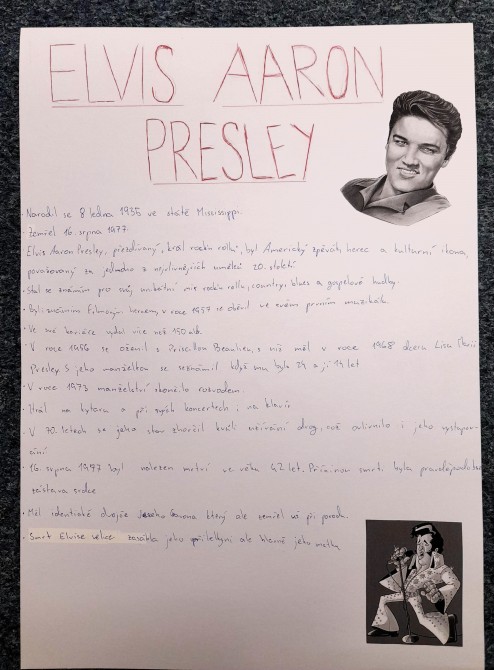 ELVIS AARON
PRESLEY
· Narodil se 8 ledna 1935 ve státě Mississippi.
· Zemřel 16. srpna 1977.
· Elvis Aaron Presley, přezdívaný, král rock'n rollu, byl Americký zpěvák, herec a kulturní ikona,
považovaný za jednoho z nejvlivnějších umělců 20. století
· Stal se známím pro svůj unikátní mix rock'n rollu, country, blues a gospelové hudby.
· Byl i filmovým hercem, v roce 1957 se objevil ve svém prvním muzikálu
· Ve své kariéře vydal více než 150 alb.
· V roce 1956 se oženil s Priscillou Beaulieu, s níž měl v roce 1968 dceru Lisu Marii
Presley. S jeho manželkou se seznámil, když mu bylo 24 a jí 14 let
· V roce 1973 manželství skončilo rozvodem.
· Hrál na kytaru a při svých koncertech i na klavír
· V 70. letech se jeho stav zhoršil kvůli užívání drog, což ovlivnilo i jeho vystupov-
ání
· 16. srpna 1977 byl nalezen mrtvý ve věku 42 let. Příčinou smrti byla pravděpodobně
zástava srdce
· Měl identické dvojče který ale zemřel už při porodu.
· Smrt Elvise velice zasáhla jeho ale hlavně jeho matku